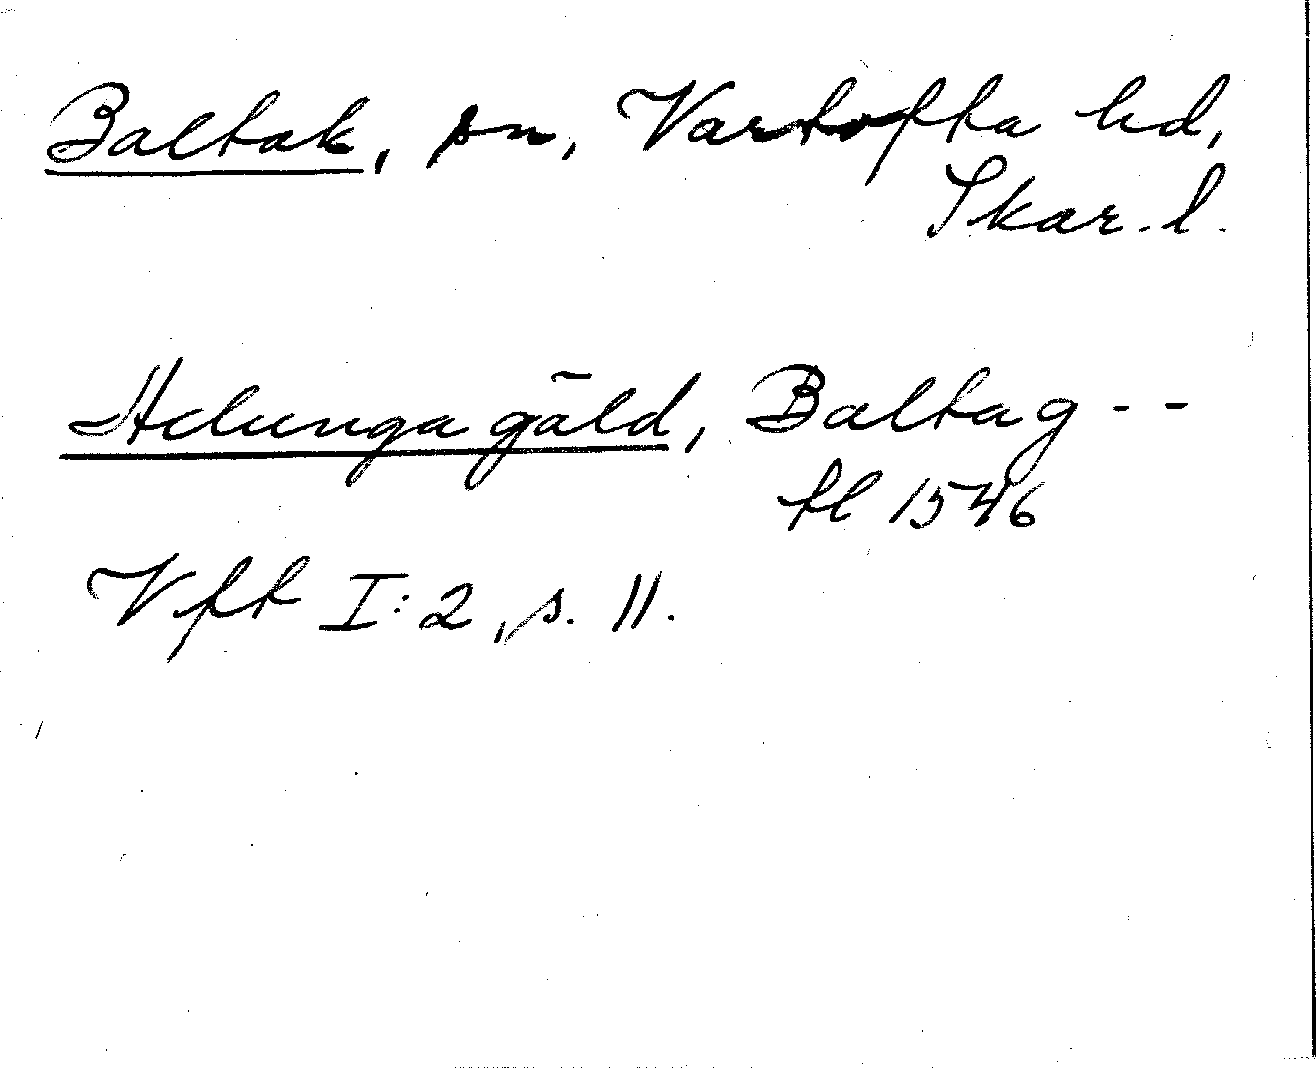 Baltak, sn, Vartofta hd,
Skar. l.
Helunga gäld, Baltag - -
tl 1546
Vft I:2, s. 11.